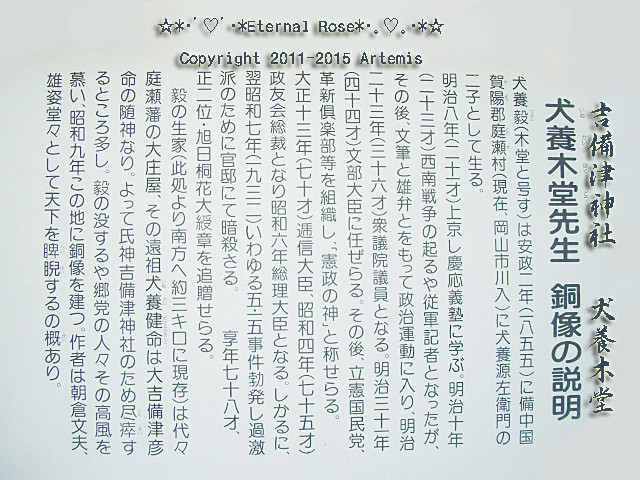 ☆*･ﾟ♡ﾟ･*Eternal Rose*･｡♡｡･*☆
Copyright 2011-2015 Artemis
吉備津神社　犬養木堂
犬養木堂先生　銅像の説明
犬養毅(木堂と号す)は安政二年(八五五)に備中国
賀陽郡庭瀬村(現在、岡山市川入)に犬養源左衛門の
二子として生る。
明治八年(二十才)上京し慶応義塾に学ぶ。明治十年
(二十三才)西南戦争の起るや従軍記者となったが、
その後、文筆と雄弁とをもって政治運動に入り、明治
二十三年(三十六才)衆議院議員となる。明治三十一年
(四十四才)文部大臣に任ぜらる。その後、立憲国民党、
革新倶楽部等を組織し、「憲政の神」と称せらる。
大正十三年(七十才)逓信大臣、昭和四年(七十五才)
政友会総裁となり昭和六年総理大臣となる。しかるに、
翌昭和七年(九三二)いわゆる五・五事件勃発し過激
派のために官邸にて暗殺さる。　享年七十八才、
正二位・旭日桐花大綬章を追贈せらる。
毅の生家(此処より南方へ約三キロに現存)は代々
庭瀬藩の大庄屋、その遠祖犬養健命は大吉備津彦
命の随神なり。よって氏神吉備津神社のため尽瘁す
るところ多し。毅の没するや郷党の人々その高風を
慕い、昭和九年この地に銅像を建つ。作者は朝倉文夫、
雄姿堂々として天下を睥睨するの概あり。